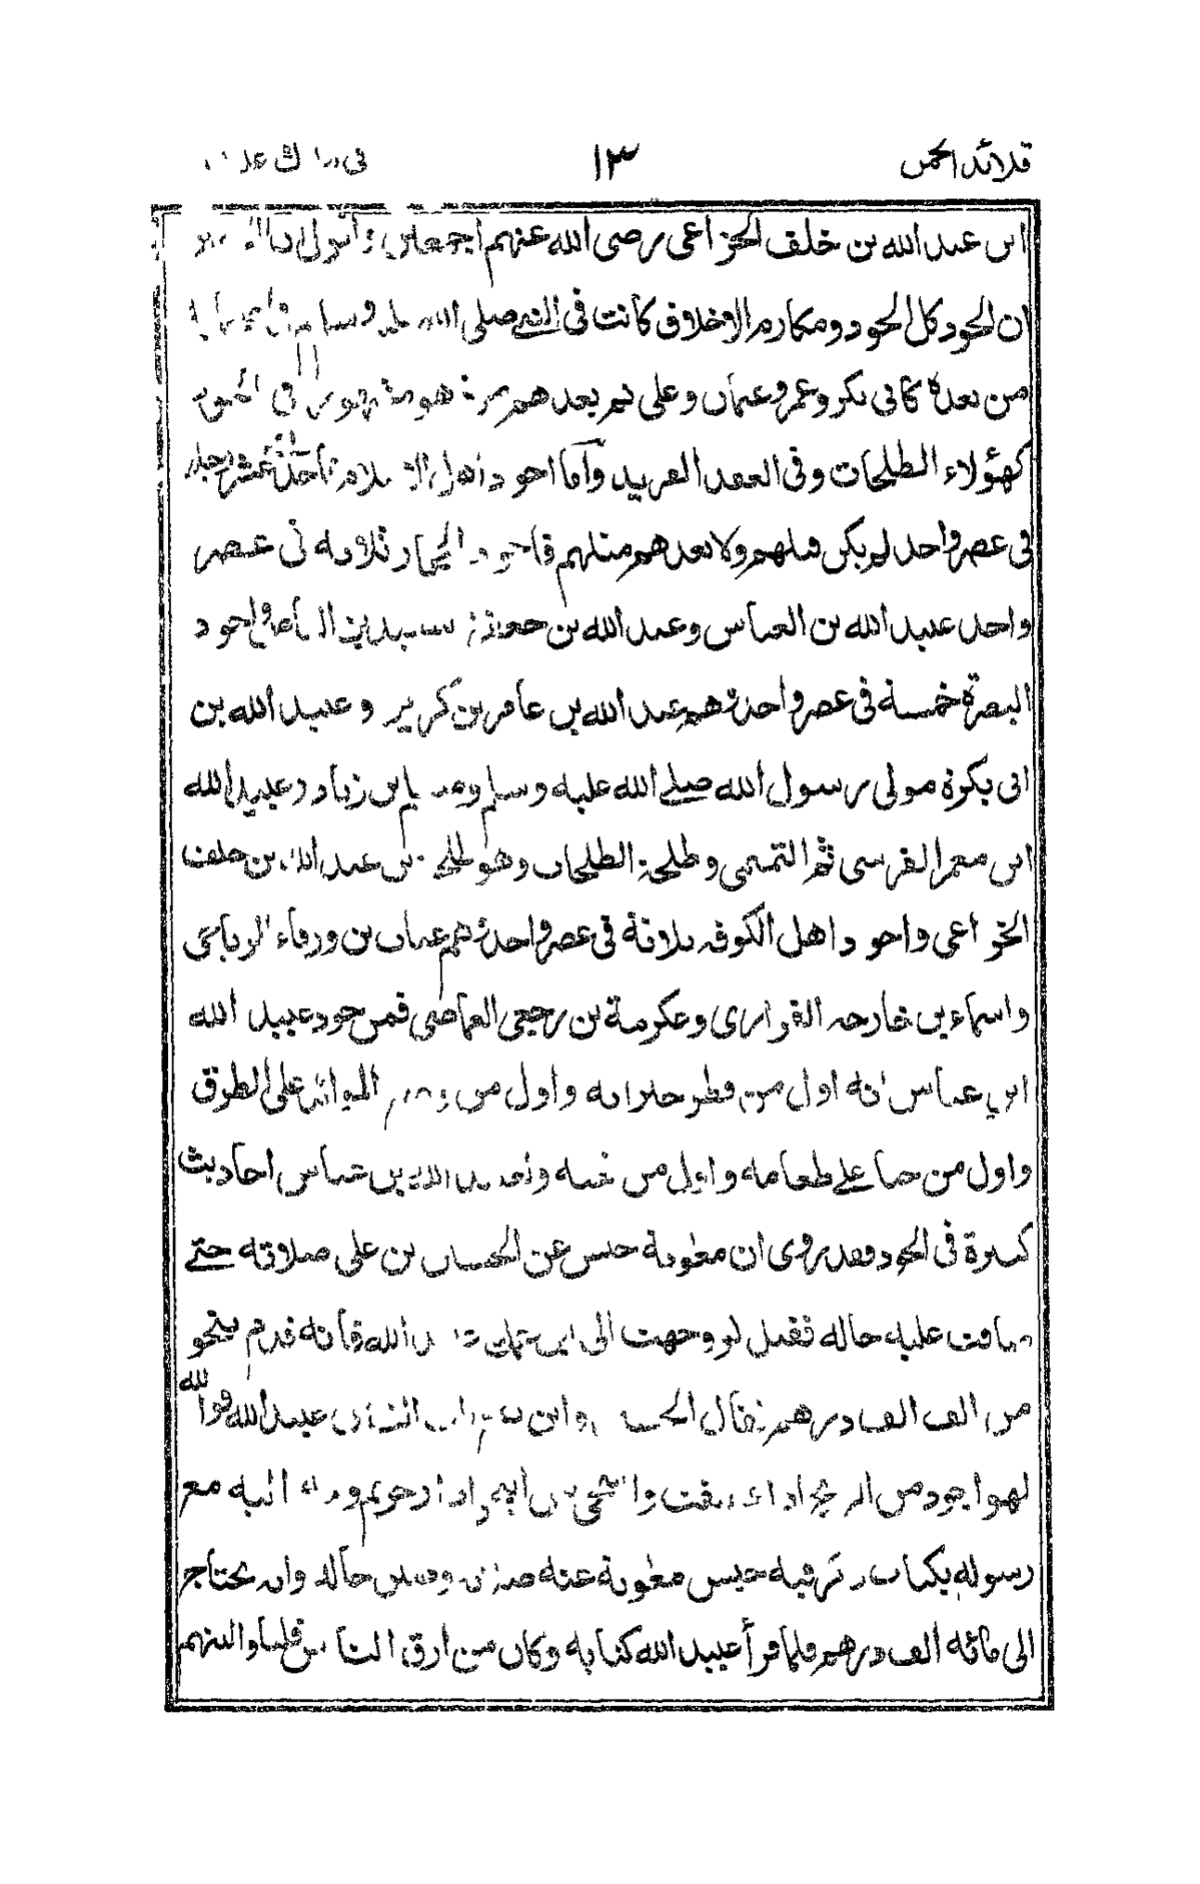 قلائد الجمان ١٣ في فرائد
ابن عبد الله بن خلف الخزاعي رضى الله عنهم اجمعين واقول
ان الجود كل الجود ومكارم الاخلاق كانت في النبي صلى الله عليه وسلم
من بعده كابي بكر وعمر وعثمان وعلي ثم بعدهم من هو مشهور في الجود
كهؤلاء الطلحات وفي العقد الفريد وآما اجود اهل الاسلام فاحد عشر رجلا
في عصر واحد لم يكن قبلهم ولا بعدهم مثلهم فاجود الحجاز ثلاثه في عصر
واحد عبيد الله بن العباس وعبد الله بن جعفر وسعيد بن العاص واجود
البصرة خمسة في عصر واحد وهم عبد الله بن عامر بن كريز وعبيد الله بن
ابي بكرة مولى رسول الله صلى الله عليه وسلم ومسلم بن زياد وعبيد الله
ابن معمر القرسى ثم التميمي وطلحة الطلحات وهو طلحة بن عبد الله بن خلف
الخزاعي واجود اهل الكوفه ثلاثة في عصر واحد وهم عتاب بن ورقاء الرياحي
واسماء بن خارجه الفزارى وعكرمة بن ربعي الفياضى فمن جود عبيد الله
ابن عباس انه اول من فطر جيرانه واول من وضع الموائد على الطرق
واول من حيا على طعامه واول من نهبه ولعبيد الله بن عباس احاديث
كثيرة في الجود فقد روى ان معوية حبس عن الحسين بن على صلاته حتى
ضاقت عليه حاله فقيل لو وجهت الى ابن عباس عبيد الله فانه قدم بنحو
من الف الف درهم فقال الحسين واين تقع الف الف من عبيد الله فوالله
لهو اجود من الريح اذا عصفت واسخى من البحر اذا زخر ثم وجه اليه مع
رسوله بكتاب ذكر فيه حبس معوية عنه صلاته وضيق حاله وانه يحتاج
الى مائه الف درهم فلما قرأ عبيد الله كتابه وكان من ارق الناس قلبا والينهم